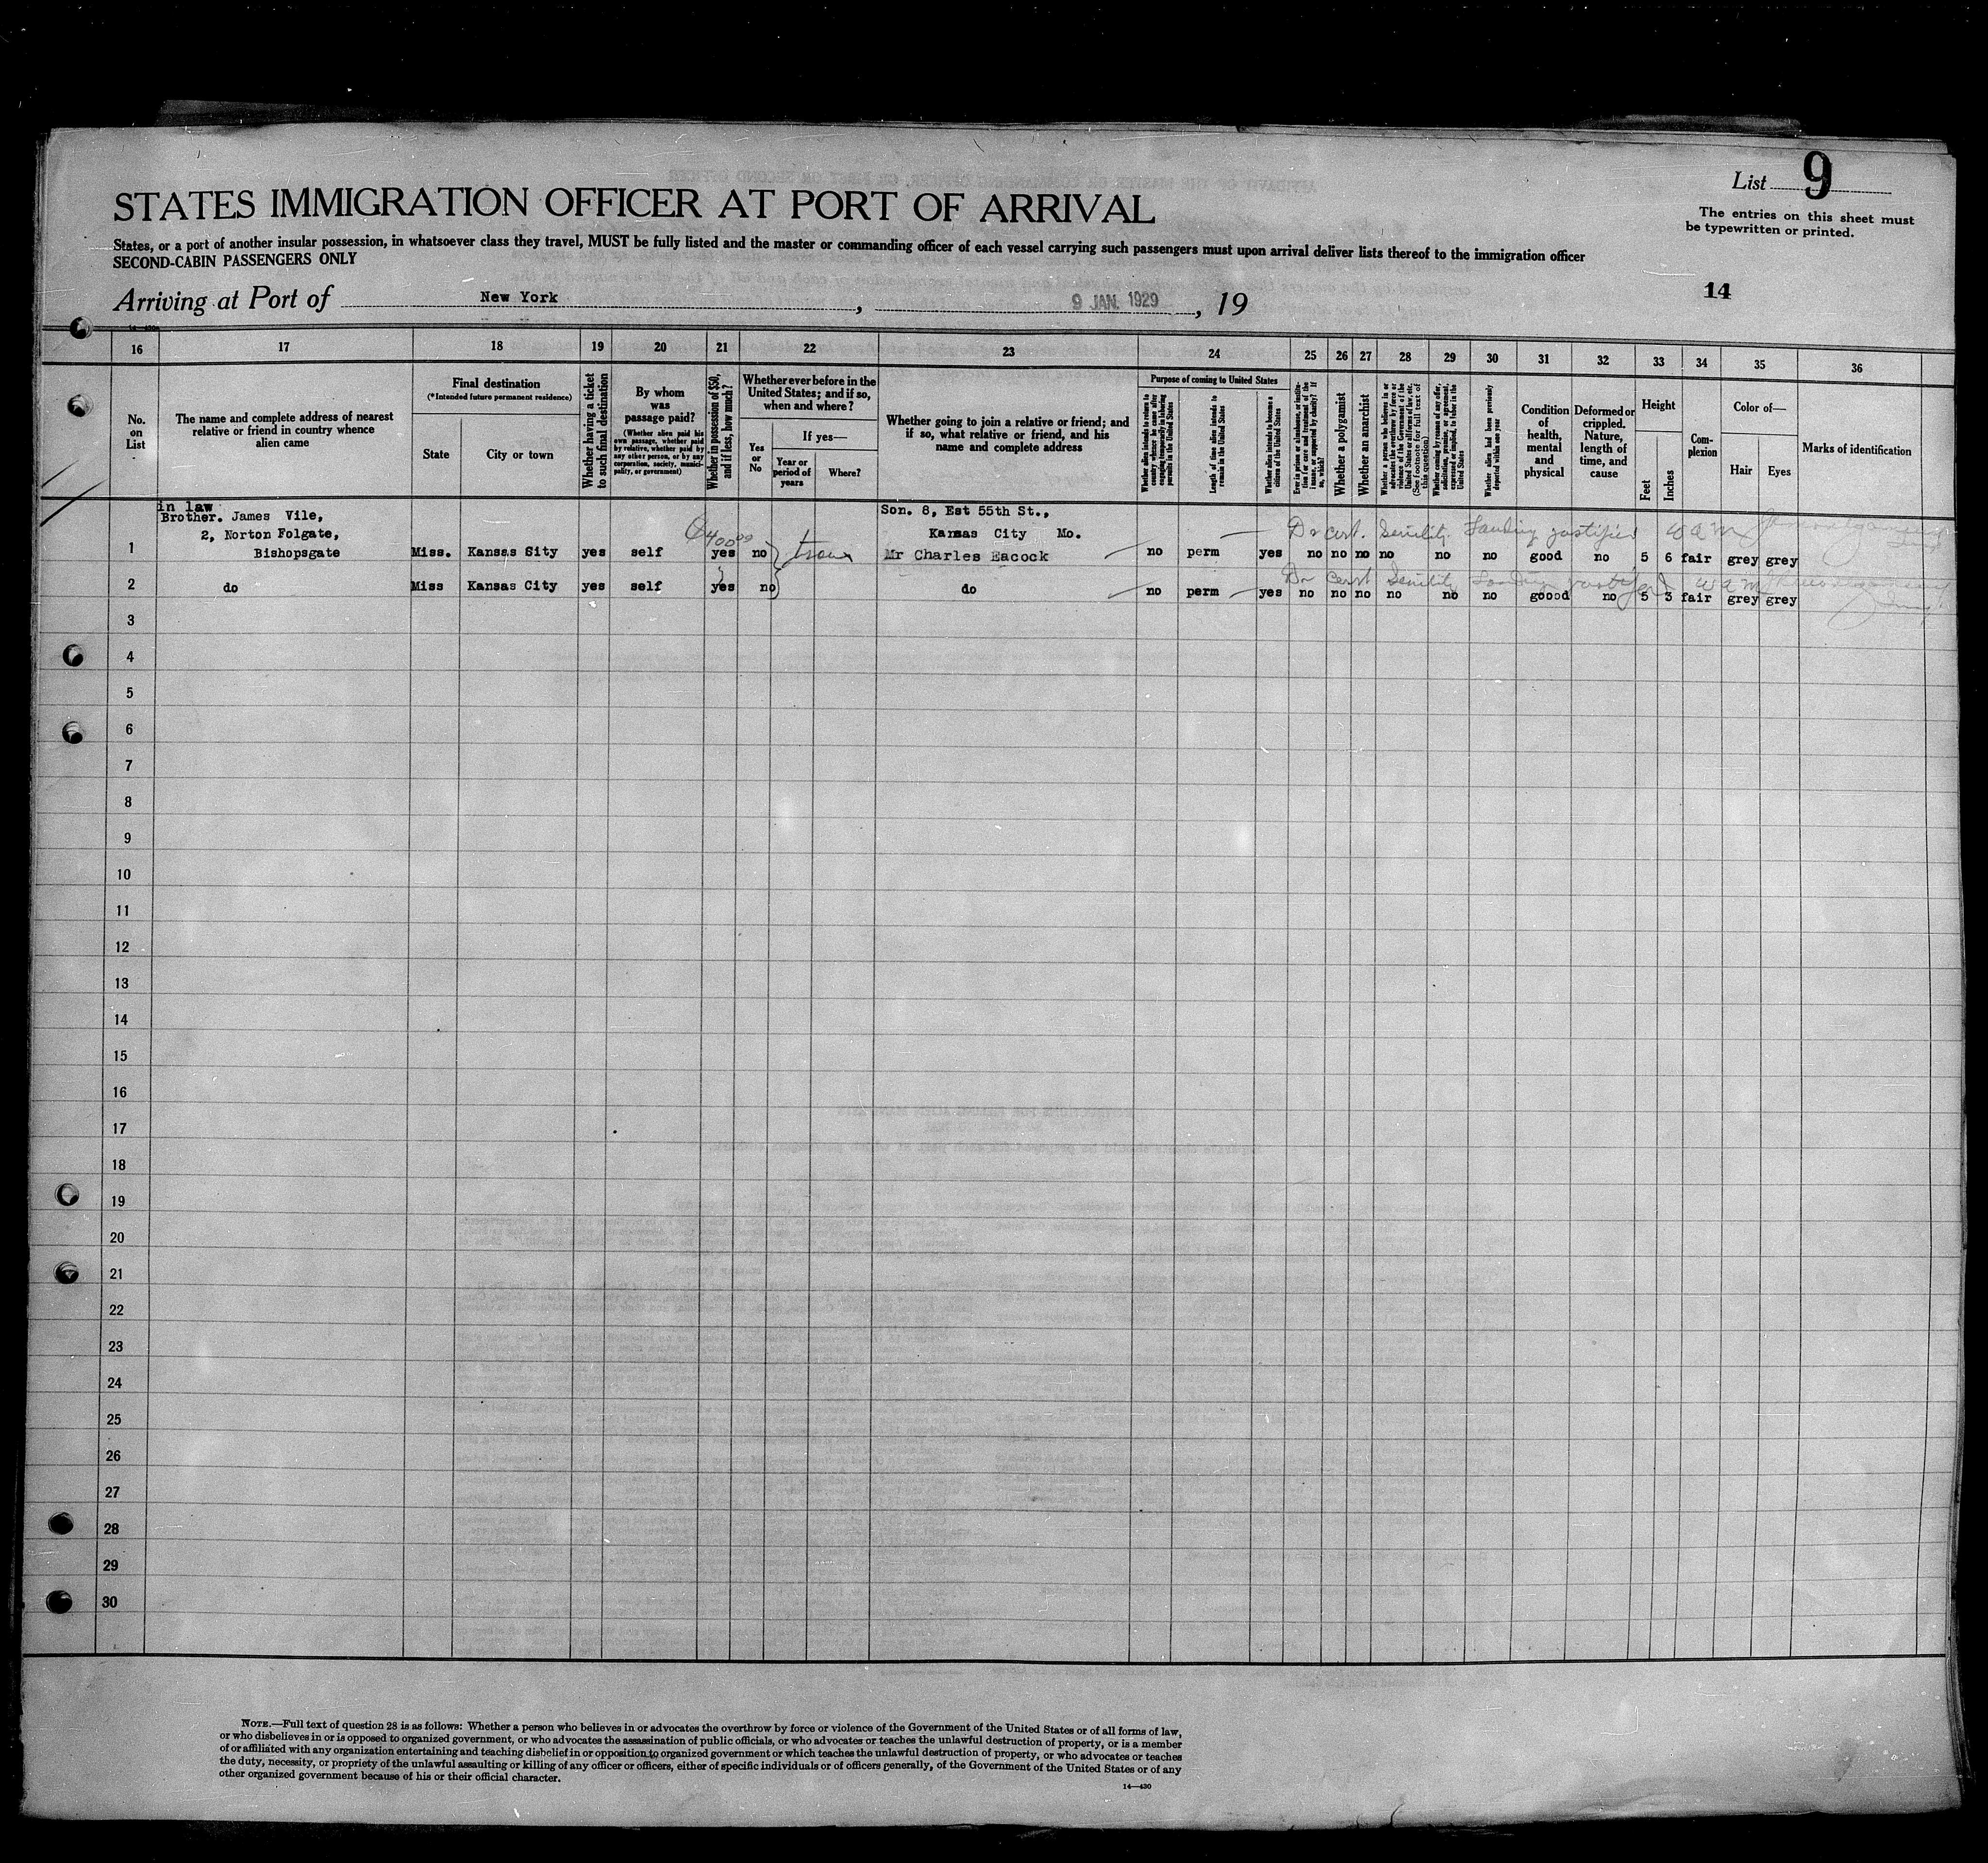 List 9
The entries on this sheet must
be typewritten or printed.
STATES IMMIGRATION OFFICER AT PORT OF ARRIVAL
States, or a port of another insular possession, in whatsoever class they travel, MUST be fully listed and the master or commanding officer of each vessel carrying such passengers must upon arrival deliver lists thereof to the immigration officer
SECOND-CABIN PASSENGERS ONLY
Arriving at Port of New York, 9 JAN. 1929, 19
14
14—430
16 17 18 19 20 21 22 23 24 25 26 27 28 29 30 31 32 33 34 35 36
No.
on
List
The name and complete address of nearest
relative or friend in country whence
alien came
Final destination
(*Intended future permanent residence)
State
City or town
Whether having a ticket
to such final destination
By whom
was
passage paid?
(Whether alien paid his
own passage, whether paid
by relative, whether paid by
any other person, or by any
corporation, society, munici-
pality, or government)
Whether in possession of $50,
and if less, how much?
Whether ever before in the
United States; and if so,
when and where?
Yes
or
No
If yes—
Year or
period of
years
Where?
Whether going to join a relative or friend; and
if so, what relative or friend, and his
name and complete address
Purpose of coming to United States
Whether alien intends to return to
country whence he came after
engaging temporarily in laboring
pursuits in the United States
Length of time alien intends to
remain in the United States
Whether alien intends to become a
citizen of the United States
Ever in prison or almshouse, or institu-
tion for care and treatment of the
insane, or supported by charity? If
so, which?
Whether a polygamist
Whether an anarchist
Whether a person who believes in or
advocates the overthrow by force or
violence of the Government of the
United States or all forms of law, etc.
(See footnote for full text of
this question)
Whether coming by reason of any offer,
solicitation, promise, or agreement,
expressed or implied, to labor in the
United States
Whether alien had been previously
deported within one year
Condition
of
health,
mental
and
physical
Deformed or
crippled.
Nature,
length of
time, and
cause
Height
Feet
Inches
Com-
plexion
Color of—
Hair
Eyes
Marks of identification
in law
Brother. James Vile,
2, Norton Folgate,
Bishopsgate
Son. 8, Est 55th St.,
Kansas City Mo.
Mr Charles Eacock
400 00
Dr cert. Senility. Landing justified W a M
1 Miss. Kansas City yes self yes no no perm yes no no no no no no good no 5 6 fair grey grey
Dr Cert Senility Landing justified W a M
2 do Miss Kansas City yes self yes no do no perm yes no no no no no no goood no 5 3 fair grey grey
3
4
5
6
7
8
9
10
11
12
13
14
15
16
17
18
19
20
21
22
23
24
25
26
27
28
29
30
NOTE.—Full text of question 28 is as follows: Whether a person who believes in or advocates the overthrow by force or violence of the Government of the United States or of all forms of law,
or who disbelieves in or is opposed to organized government, or who advocates the assassination of public officials, or who advocates or teaches the unlawful destruction of property, or is a member
of or affiliated with any organization entertaining and teaching disbelief in or opposition to organized government or which teaches the unlawful destruction of property, or who advocates or teaches
the duty, necessity, or propriety of the unlawful assaulting or killing of any officer or officers, either of specific individuals or of officers generally, of the Government of the United States or of any
other organized government because of his or their official character.
14—430